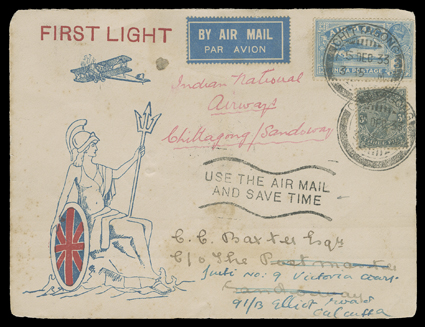 FIRST LIGHT
BY AIR MAIL
PAR AVION
CHITTAGONG
15 DEC 33
POSTAGE
Indian National
Airways
Chittagong/Sandoway
USE THE AIR MAIL
AND SAVE TIME
C. C. Baxter Esqr
C/o The Postmaster
Suite No. 9 Victoria Court
Sandoway
91/B Elliot Road
Calcutta